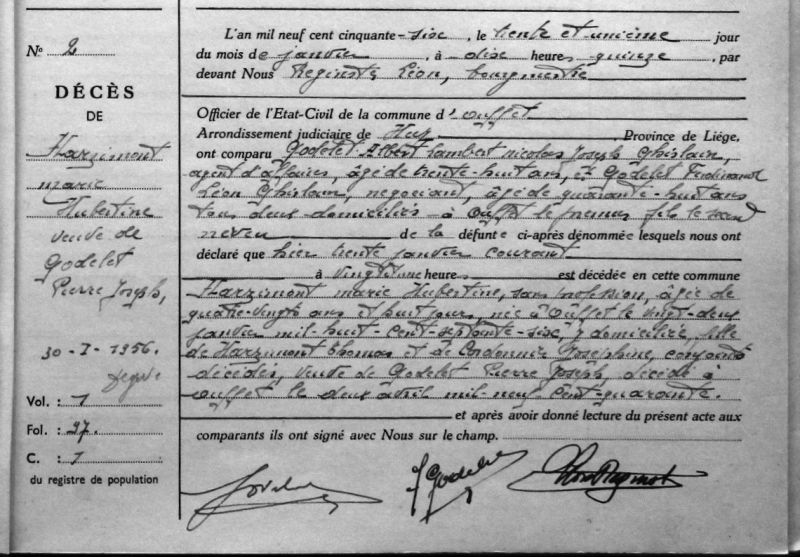 N° 2
DÉCÈS
DE
Harzimont
marie
Hubertine
veuve de
Godelet
Pierre Joseph,
30-I-1956.
Vol. : 1
Fol. : 27.
C. : 1
du registre de population
L'an mil neuf cent cinquante-sisc, le trente et unième jour
du mois de janvier, à disc heures quinze, par
devant Nous Reginster Léon, bourgmestre
Officier de l'Etat-Civil de la commune d'Ouffet
Arrondissement judiciaire de Huy, Province de Liége,
ont comparu Godelet Albert Lambert nicolas Joseph Ghislain,
agent d'affaires, âgé de trente-huit ans, et Godelet Ferdinand
Léon Ghislain, negociant, âgé de quarante-huit ans
tous deux domiciliés à Ouffet le premier fils le second
neveu de la défunte ci-après dénommée lesquels nous ont
déclaré que hier trente janvier courant
à vingt et une heures est décédée en cette commune
Harzimont marie Hubertine, sans profession, âgée de
quatre-vingts ans et huit jours, née à Ouffet le vingt-deux
janvier mil-huit-cent-septante-sisc, y domiciliée, fille
de Harzimont Thomas et de Cordonnier Josephine, conjoints
décédés, veuve de Godelet Pierre Joseph, décédé à
Ouffet le deux avril mil-neuf-cent-quarante.
et après avoir donné lecture du présent acte aux
comparants ils ont signé avec Nous sur le champ.
Godelet